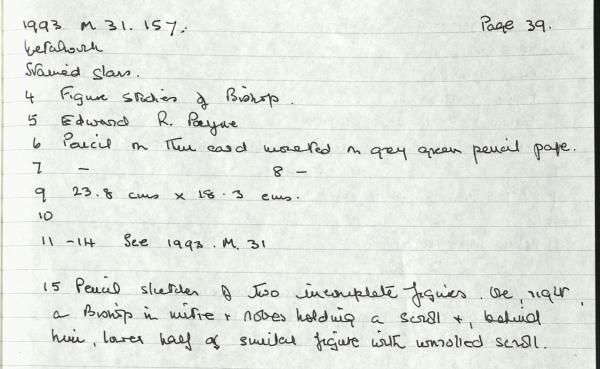 1993 M 31. 157. Page 39.
Stained Glass.
4 Figure studies of Bishop.
5 Edward R. Payne
6 Pencil on thin card mounted on grey green pencil pape.
7 – 8 –
9 23.8 cms x 18.3 cms.
10
11-14 See 1993.M.31
15 Pencil sketches of two incomplete figures. One, right,
a Bishop in mitre + robes holding a scroll +, behind
him, lower half of similar figure with unrolled scroll.